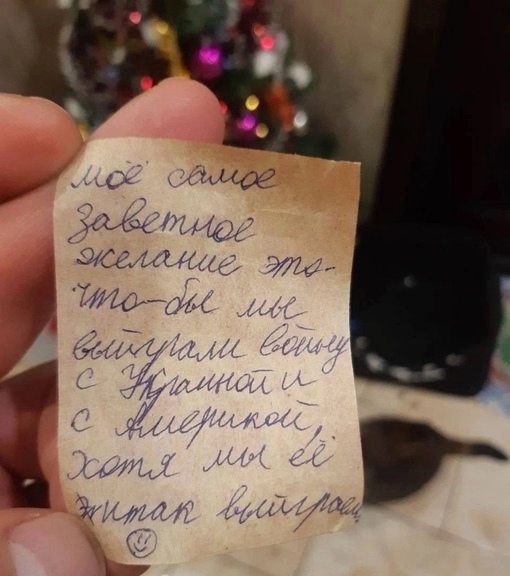 моё самое
заветное
желание это-
что-бы мы
выйграли войну
с Украиной и
с Америкой,
хотя мы её
житак выйграем